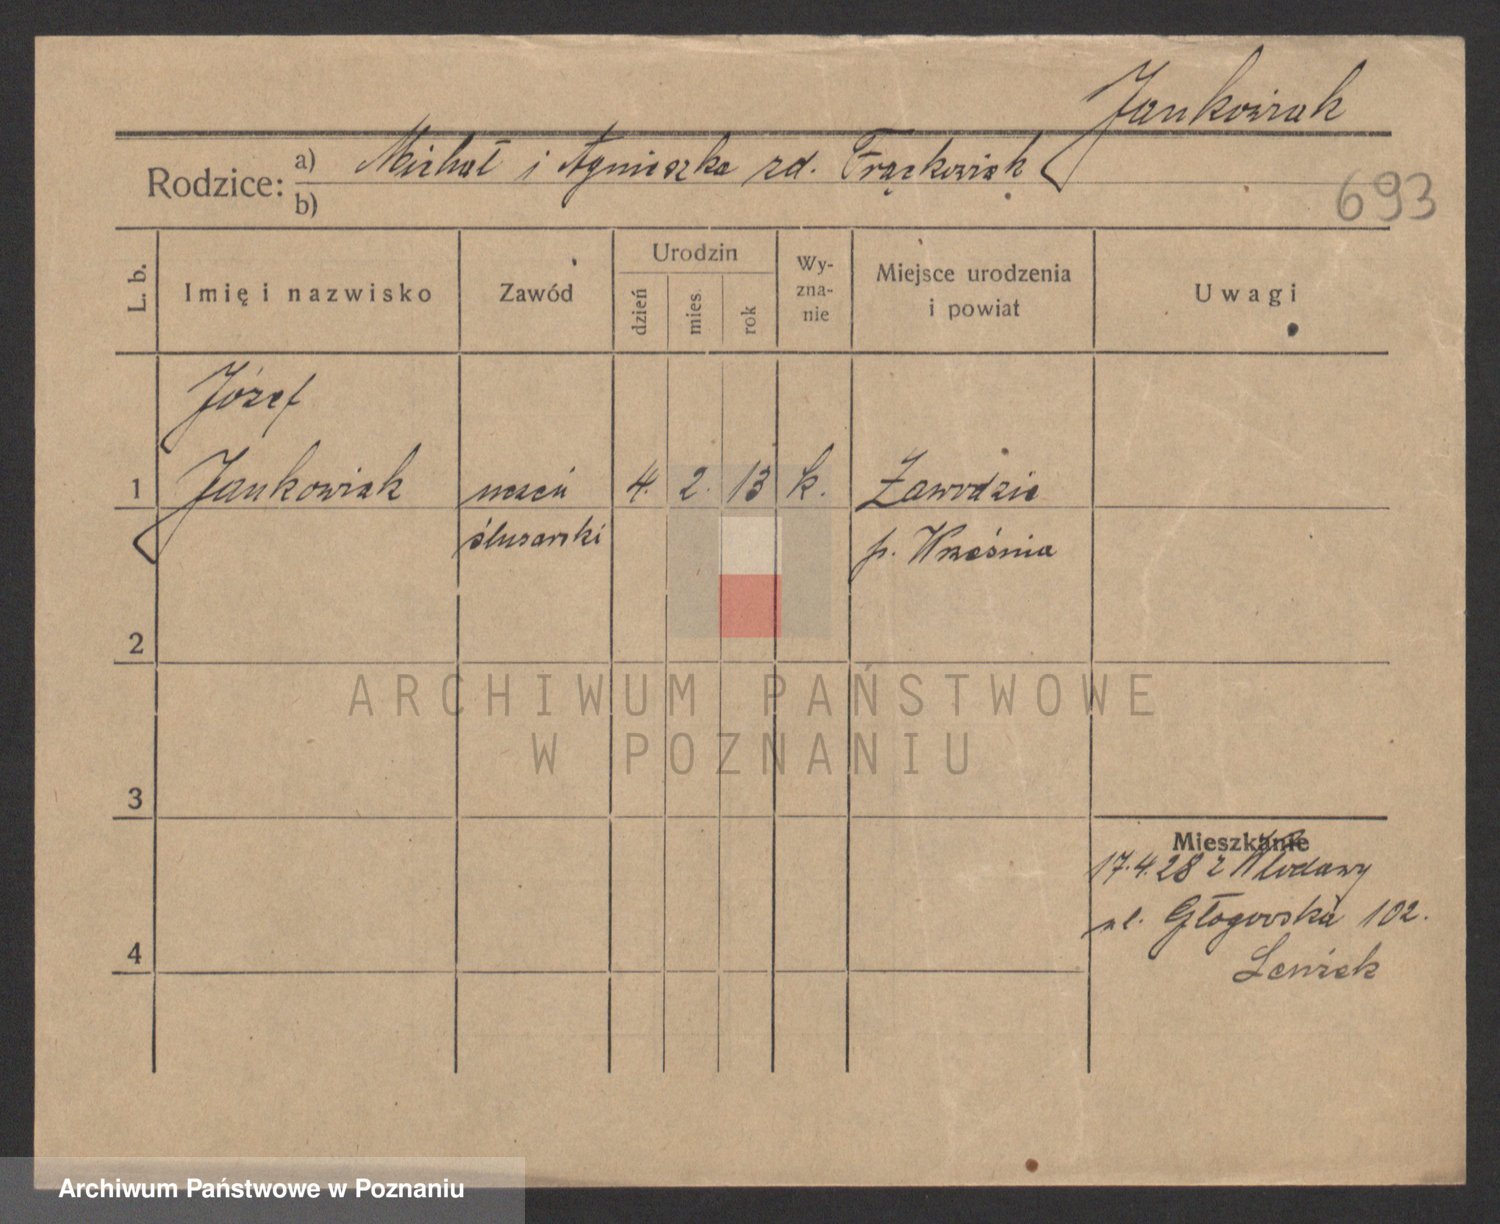 Jankowiak
Rodzice: a) Michał i Agnieszka zd. Frąckowiak
b)
693
L. b.
Imię i nazwisko
Zawód
Urodzin
dzień
mies.
rok
Wy-
zna-
nie
Miejsce urodzenia
i powiat
Uwagi
Józef
1 Jankowiak uczeń 4. 2. 13 k. Zawodzie
ślusarski p. Września
2
ARCHIWUM PAŃSTWOWE
W POZNANIU
3
Mieszkanie
17.4.28 z Włodawy
ul. Głogowska 102.
4
Archiwum Państwowe w Poznaniu